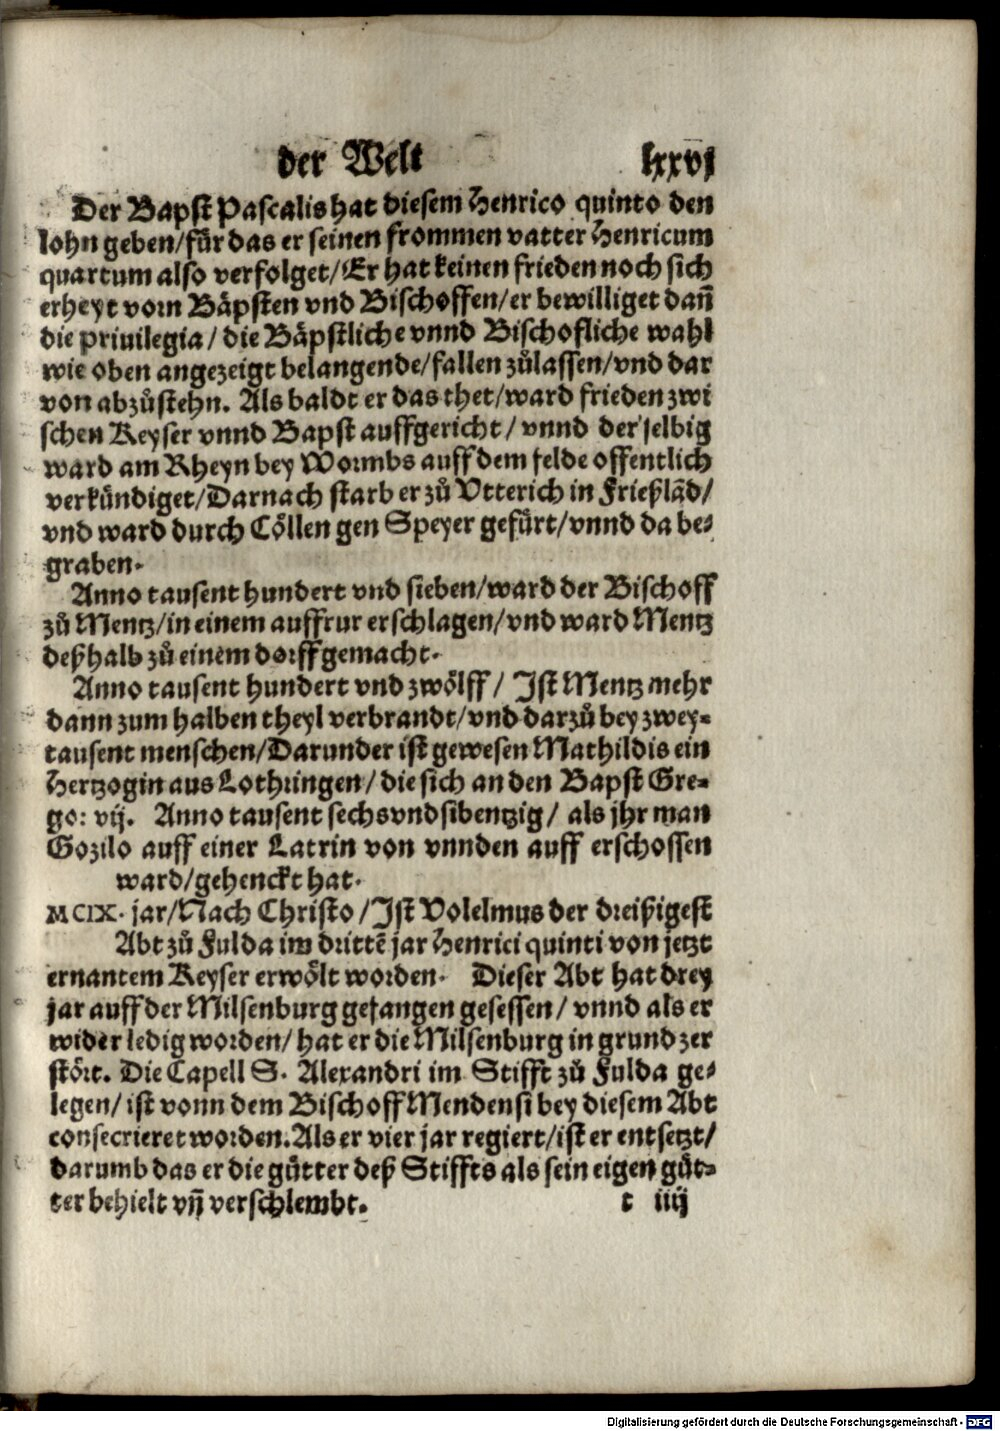 der Welt lxxvj
Der Bapst Pascalis hat diesem Henrico quinto den
lohn geben/für das er seinen frommen vatter Henricum
quartum also verfolget/Er hat keinen frieden noch sich
erheyt vorn Bäpsten vnd Bischoffen/er bewilliget dañ
die priuilegia/die Bäpstliche vnnd Bischofliche wahl
wie oben angezeigt belangende/fallen zůlassen/vnd dar
von abzůstehn. Als baldt er das thet/ward frieden zwi
schen Keyser vnnd Bapst auffgericht/vnnd derselbig
ward am Rheyn bey Wormbs auff dem felde offentlich
verkündiget/Darnach starb er zů Vtterich in Frießlãd/
vnd ward durch Cöllen gen Speyer gefürt/vnnd da be-
graben.
Anno tausent hundert vnd sieben/ward der Bischoff
zů Mentz/in einem auffrur erschlagen/vnd ward Mentz
deßhalb zů einem dorff gemacht.
Anno tausent hundert vnd zwölff/Ist Mentz mehr
dann zum halben theyl verbrandt/vnd darzů bey zwey-
tausent menschen/Darunder ist gewesen Mathildis ein
Hertzogin aus Lothringen/die sich an den Bapst Gre-
go: vij. Anno tausent sechs vnd sibentzig/als jhr man
Gozilo auff einer Latrin von vnnden auff erschossen
ward/gehenckt hat.
MCIX. jar/Nach Christo/Ist Volelmus der dreißigest
Abt zů Fulda im drittẽ jar Henrici quinti von jetzt
ernantem Keyser erwölt worden. Dieser Abt hat drey
jar auff der Milsenburg gefangen gesessen/vnnd als er
wider ledig worden/hat er die Milsenburg in grund zer
stört. Die Capell S. Alexandri im Stifft zů Fulda ge-
legen/ist vonn dem Bischoff Mendensi bey diesem Abt
consecrieret worden. Als er vier jar regiert/ist er entsetzt/
darumb das er die gütter deß Stiffts als sein eigen güt-
ter behielt vñ verschlembt. t iiij
Digitalisierung gefördert durch die Deutsche Forschungsgemeinschaft - DFG